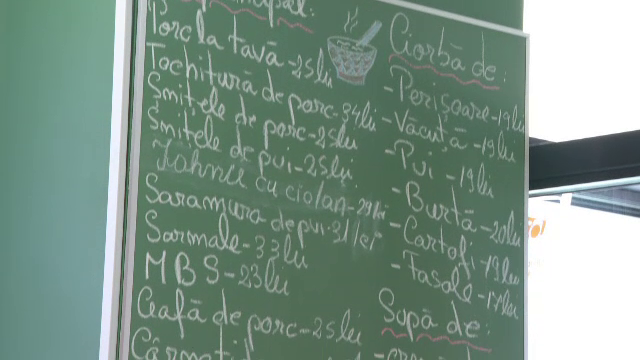 principal:
Porc la tavă - 25 lu
Tochitură de porc - 34 lu
Șnițele de porc - 25 lu
Șnițele de pui - 25 lu
Iahnie cu ciolan - 29 lei
Saramură de pui - 31 lei
Sarmale - 33 lu
MBS - 23 lu
Ceafă de porc - 25 lei
Cârnați
Ciorbă de:
- Perișoare - 19 lu
- Văcuță - 19 lu
- Pui - 19 lu
- Burtă - 20 lu
- Cartofi - 19 lu
- Fasole - 19 lu
Supă de: